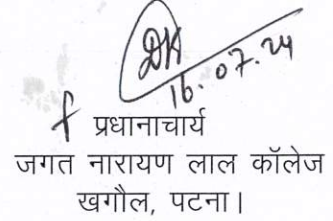 16.07.24
प्रधानाचार्य
जगत नारायण लाल कॉलेज
खगौल, पटना।